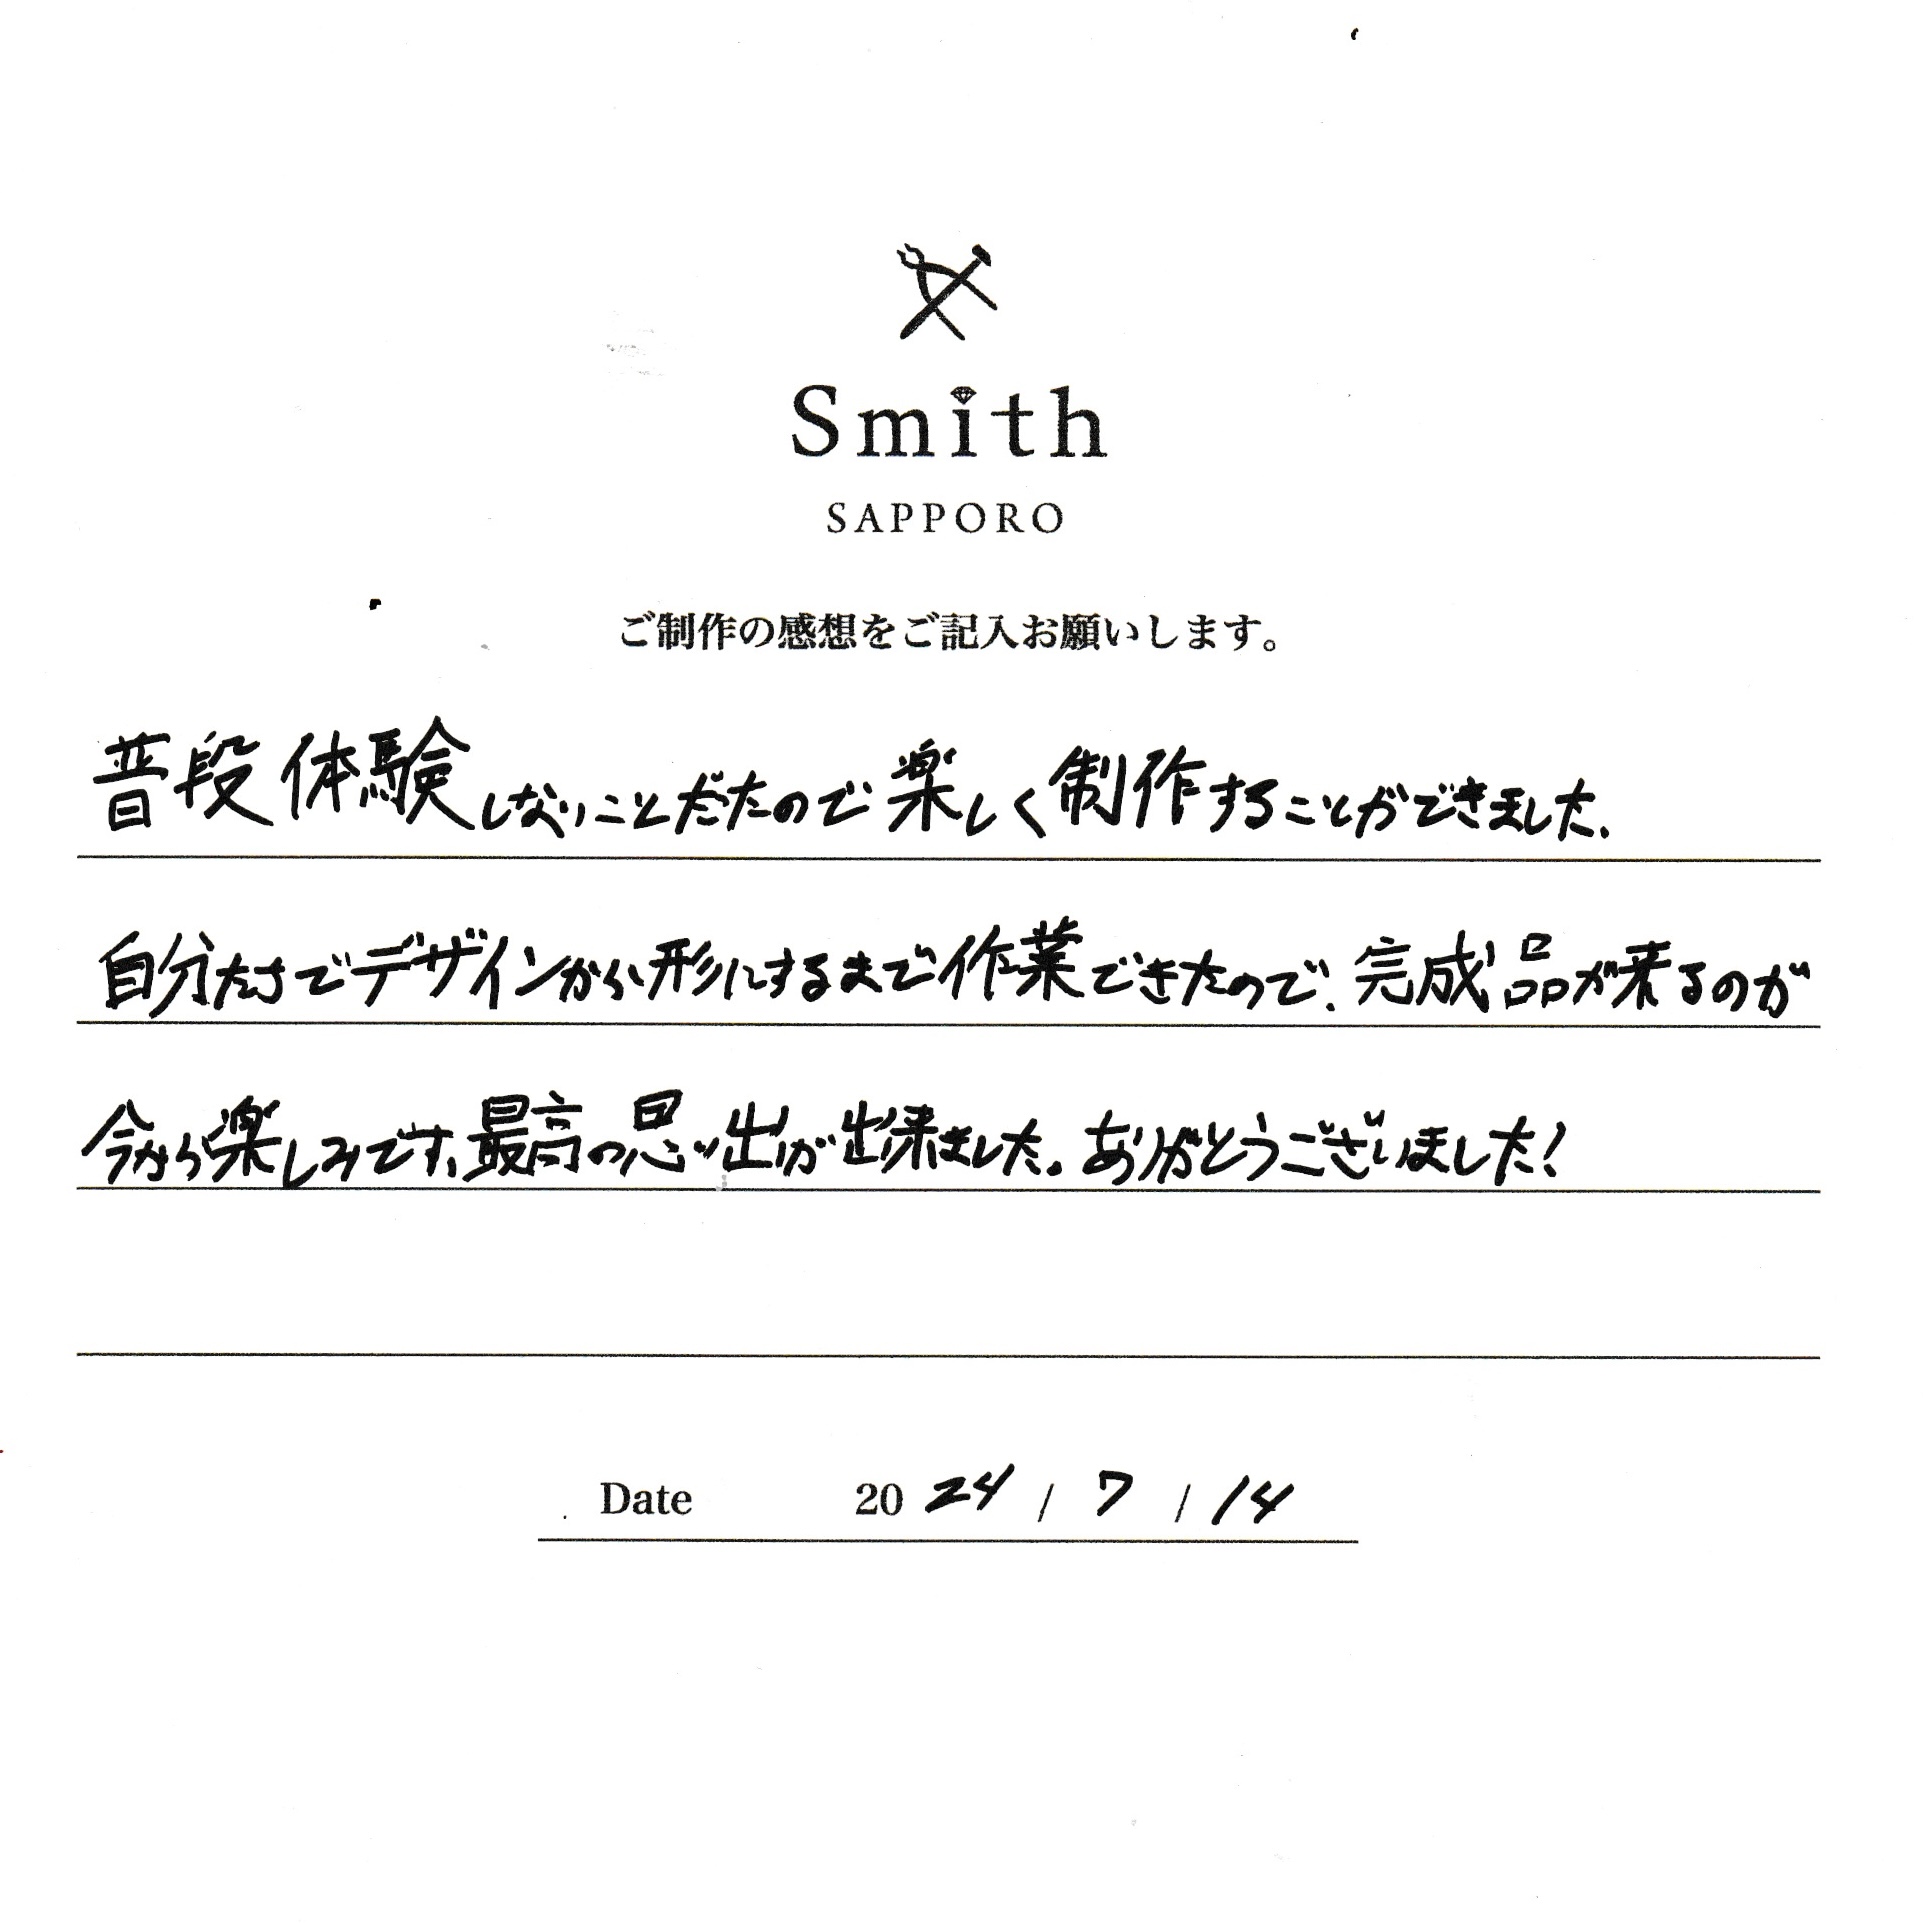 Smith
SAPPORO
ご制作の感想をご記入お願いします。
普段体験しないことだたので楽しく制作することができました.
自分たちでデザインから形にするまで作業できたので、完成品が来るのが
今から楽しみです、最高の思い出が出来ました。ありがとうございました!
Date 2024 / 7 / 14